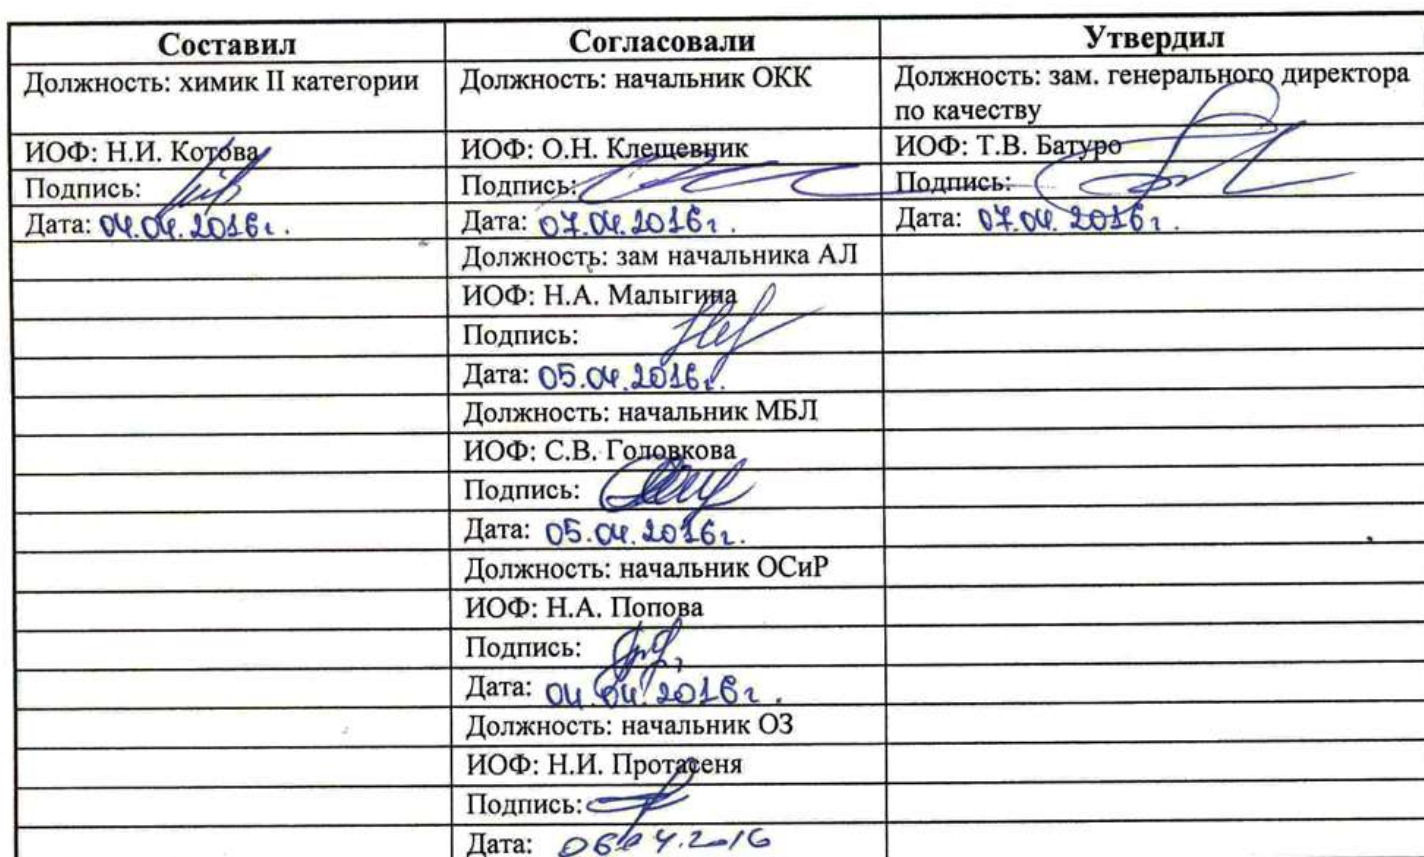 Составил Согласовали Утвердил
Должность: химик II категории Должность: начальник ОКК Должность: зам. генерального директора
по качеству
ИОФ: Н.И. Котова ИОФ: О.Н. Клещевник ИОФ: Т.В. Батуро
Подпись: Подпись: Подпись:
Дата: 04.04.2016г. Дата: 07.04.2016г. Дата: 07.04.2016г.
Должность: зам начальника АЛ
ИОФ: Н.А. Малыгина
Подпись:
Дата: 05.04.2016г.
Должность: начальник МБЛ
ИОФ: С.В. Головкова
Подпись:
Дата: 05.04.2016г.
Должность: начальник ОСиР
ИОФ: Н.А. Попова
Подпись:
Дата: 04.04.2016г.
Должность: начальник ОЗ
ИОФ: Н.И. Протасеня
Подпись:
Дата: 06.04.2016